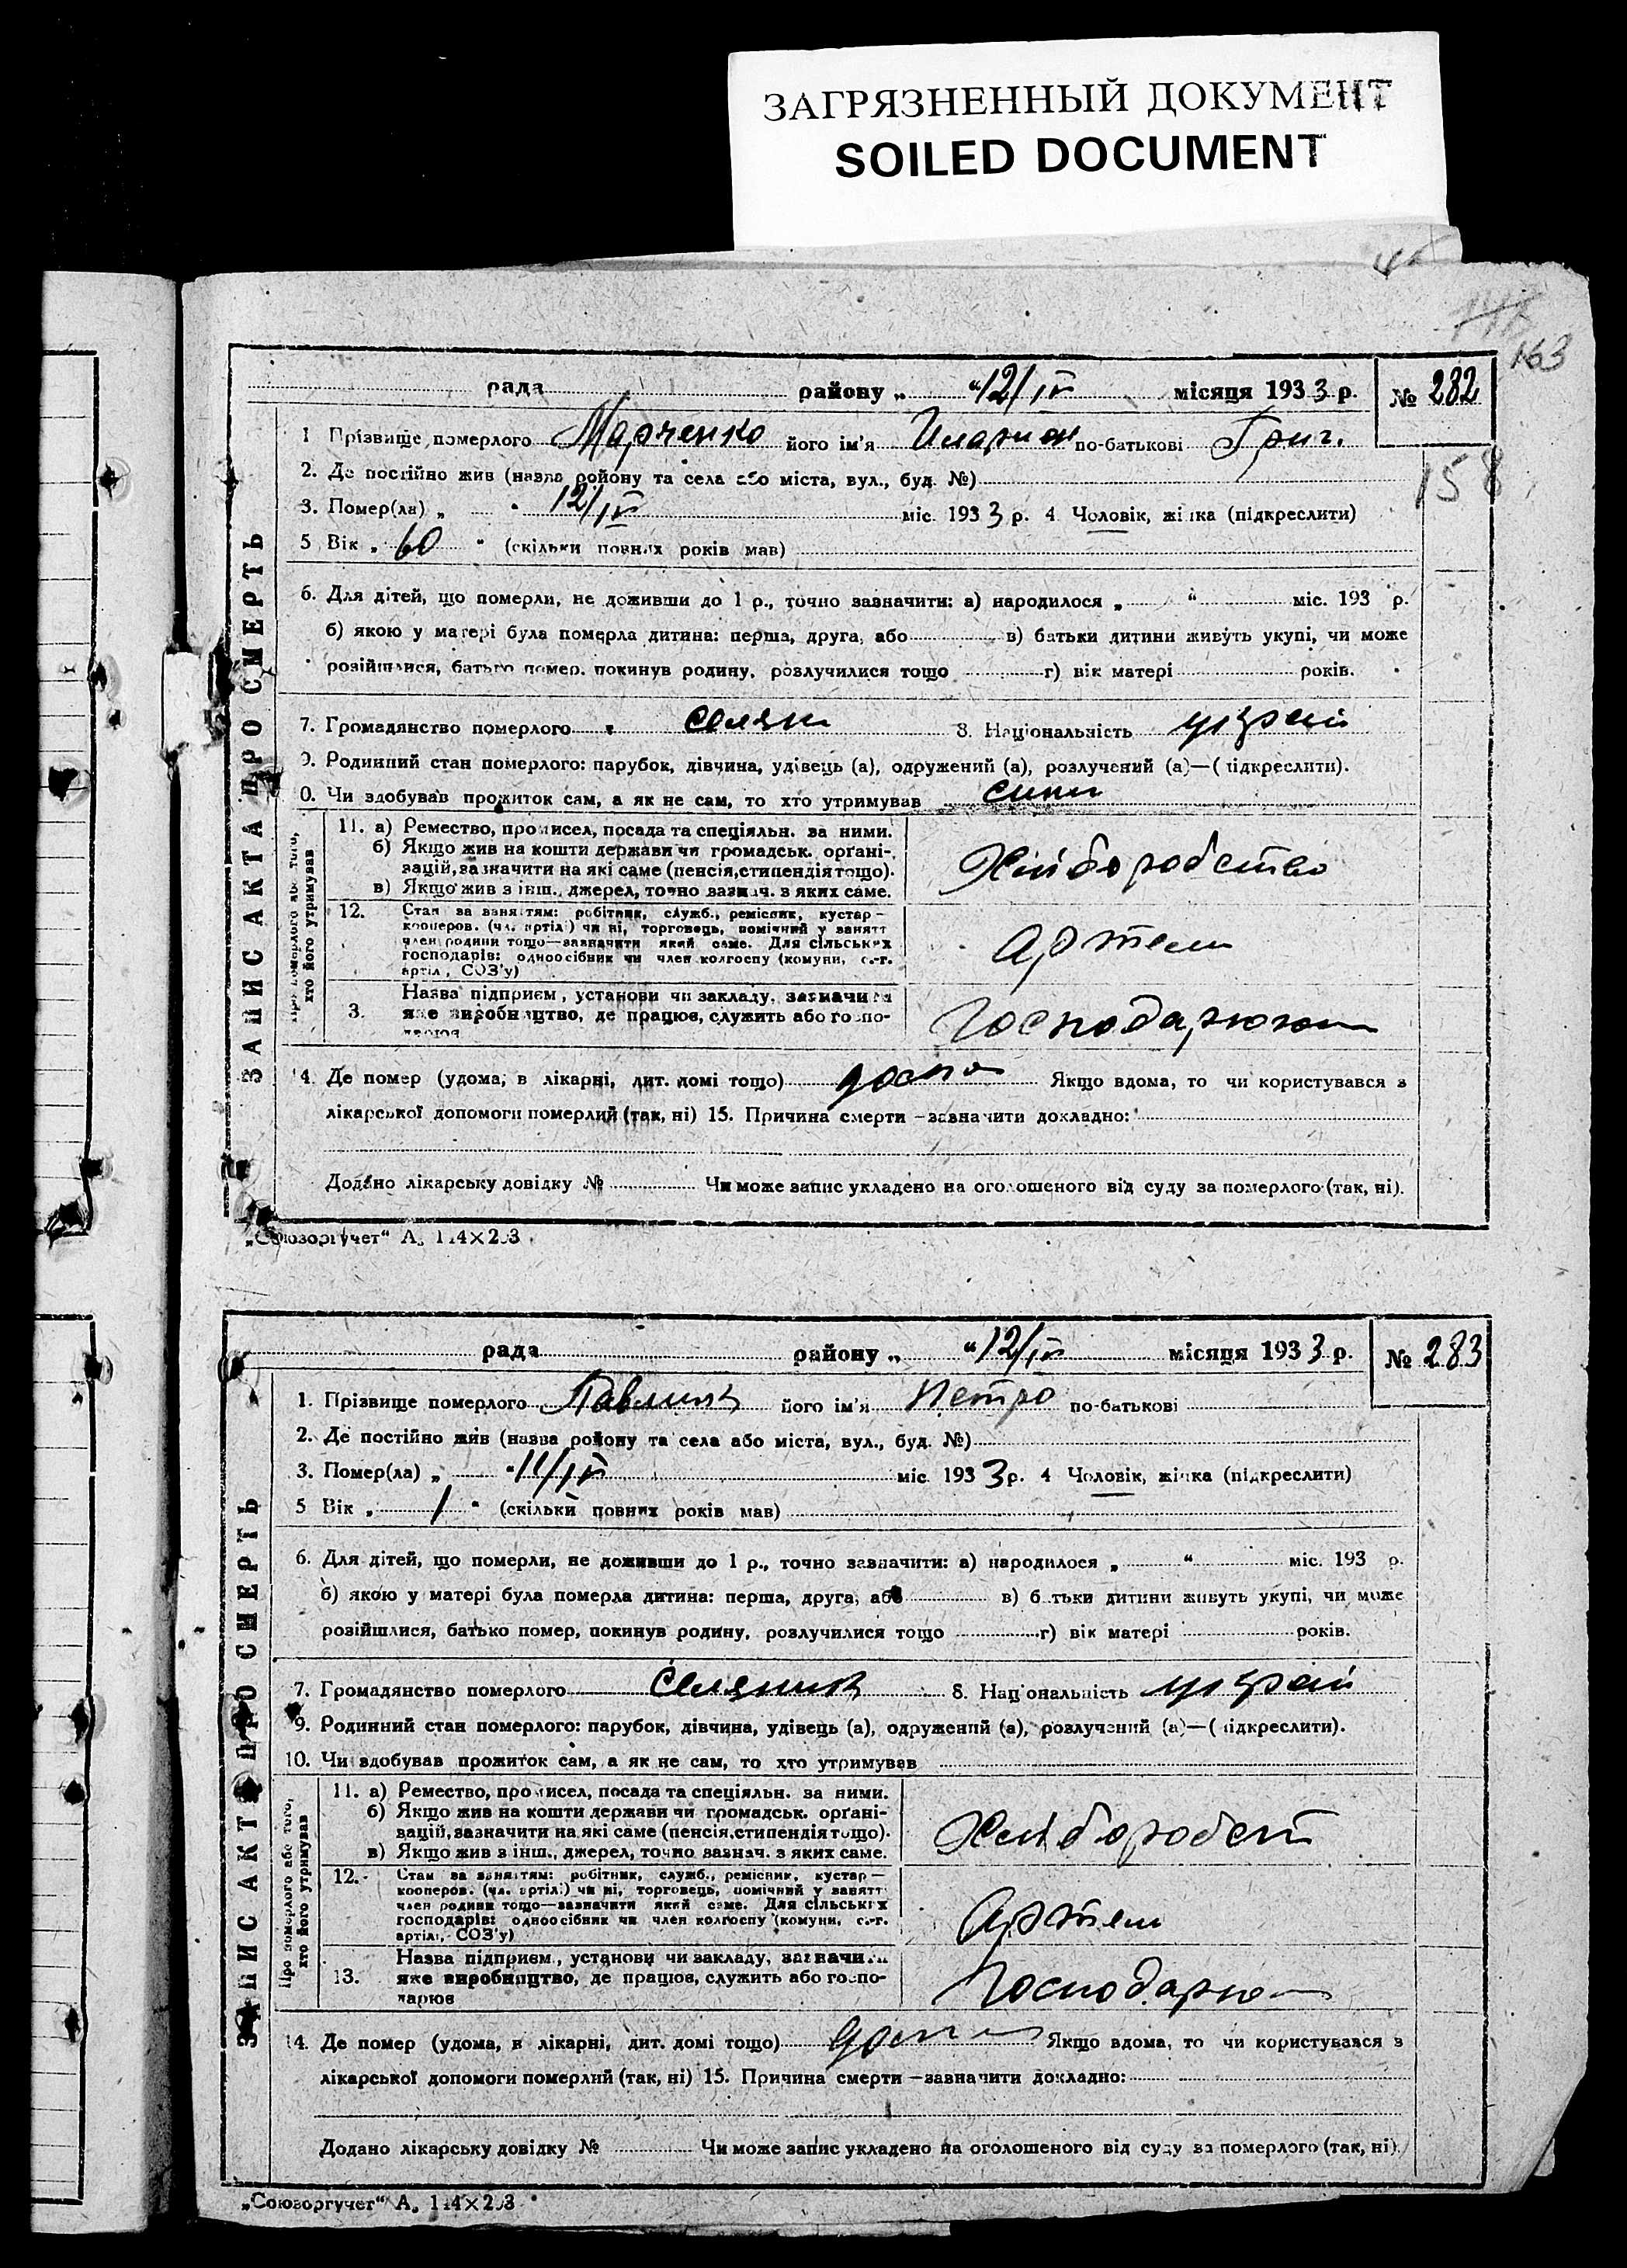 ЗАГРЯЗНЕННЫЙ ДОКУМЕНТ
SOILED DOCUMENT
163
158
ЗАПИС АКТА ПРО СМЕРТЬ
рада району „ “ 12/IV місяця 1933 р. № 282
1 Прізвище померлого Марченко його ім'я Иларион по-батькові Григ.
2. Де постійно жив (назва ройону та села або міста, вул., буд. №)
3. Помер(ла) „ “ 12/IV міс. 1933 р. 4 Чоловік, жінка (підкреслити)
5 Вік „ 60 “ (скільки повних років мав)
6. Для дітей, що померли, не доживши до 1 р., точно зазначити: а) народилося „ “ міс. 193 р.
б) якою у матері була померла дитина: перша, друга, або в) батьки дитини живуть укупі, чи може
розійшлися, батько помер, покинув родину, розлучилися тощо г) вік матері років.
7. Громадянство померлого селян 8. Національність україн
9. Родинний стан померлого: парубок, дівчина, удівець (а), одружений (а), розлучений (а)—(підкреслити).
0. Чи здобував прожиток сам, а як не сам, то хто утримував сини
Про померлого або того, хто його утримував
11. а) Ремество, промисел, посада та спеціяльн. за ними.
б) Якщо жив на кошти держави чи громадськ. органі-
зацій, зазначити на які саме (пенсія, стипендія тощо).
в) Якщо жив з інш., джерел, точно зазнач. з яких саме.
Хліборобство
12. Стан за заняттям: робітник, служб., ремісник, кустар—
кооперов. (чл. артілі) чи ні, торговець, помічний у занятт
член родини тощо—зазначити який саме. Для сільських
господарів: одноосібник чи член колгоспу (комуни, с.-г.
артіл, СОЗ'у)
Артели
3. Назва підприєм, установи чи закладу, зазначи
яке виробництво, де працює, служить або госпо-
дарює
14. Де помер (удома, в лікарні, дит. домі тощо) дома Якщо вдома, то чи користувався з
лікарської допомоги померлий (так, ні) 15. Причина смерти—зазначити докладно:
Додано лікарську довідку № Чи може запис укладено на оголошеного від суду за померлого (так, ні).
„Союзоргучет“
ЗАПИС АКТА ПРО СМЕРТЬ
рада району „ “ 12/IV місяця 1933 р. № 283
1. Прізвище померлого Павлик його ім'я Петро по-батькові
2. Де постійно жив (назва ройону та села або міста, вул., буд. №)
3. Помер(ла) „ “ 11/IV міс. 1933 р. 4 Чоловік, жінка (підкреслити)
5 Вік „ 1 “ (скільки повних років мав)
6. Для дітей, що померли, не доживши до 1 р., точно зазначити: а) народилося „ “ міс. 193 р.
б) якою у матері була померла дитина: перша, друга, або в) батьки дитини живуть укупі, чи може
розійшлися, батько помер, покинув родину, розлучилися тощо г) вік матері років.
7. Громадянство померлого селянин 8. Національність україн
9. Родинний стан померлого: парубок, дівчина, удівець (а), одружений (а), розлучений (а)—(підкреслити).
10. Чи здобував прожиток сам, а як не сам, то хто утримував
Про померлого або того, хто його утримував
11. а) Ремество, промисел, посада та спеціяльн. за ними.
б) Якщо жив на кошти держави чи громадськ. органі-
зацій, зазначити на які саме (пенсія, стипендія тощо).
в) Якщо жив з інш., джерел, точно зазнач. з яких саме.
Хліборобст
12. Стан за заняттям: робітник, служб., ремісник, кустар—
кооперов. (чл. артілі) чи ні, торговець, помічний у занятт
член родини тощо—зазначити який саме. Для сільських
господарів: одноосібник чи член колгоспу (комуни, с.-г.
артілі, СОЗ'у)
Артели
13. Назва підприєм, установи чи закладу, зазначи
яке виробництво, де працює, служить або госпо-
дарює
14. Де помер (удома, в лікарні, дит. домі тощо) дома Якщо вдома, то чи користувався з
лікарської допомоги померлий (так, ні) 15. Причина смерти—зазначити докладно:
Додано лікарську довідку № Чи може запис укладено на оголошеного від суду за померлого (так, ні).
„Союзоргучет“